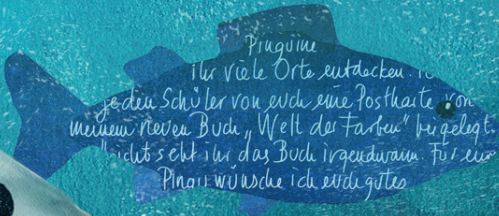 Pinguine
ihr viele Orte entdecken.
jeden Schüler von euch eine Postkarte von
meinem neuen Buch „Welt der Farben" beigelegt.
seht ihr das Buch irgendwann. Für eure
wünsche ich euch gutes